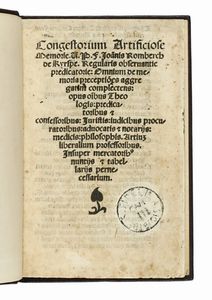 Congestorium Artificiose
Memorie. V. P. F. Joānis Romberch
de Kyrspe. Regularis obseruantie
predicatorie: Omnium de me-
moria preceptiões aggre
gatim complectens:
opus oībus Theo
logis: predica-
toribus &
confessoribus: Juristis: iudicibus procu
ratoribus: aduocatis & notarijs:
medicis: philosophis. Artium
liberalium professoribus.
Insuper mercatoribꝰ
nuntijs & tabel-
larijs perne-
cessarium.